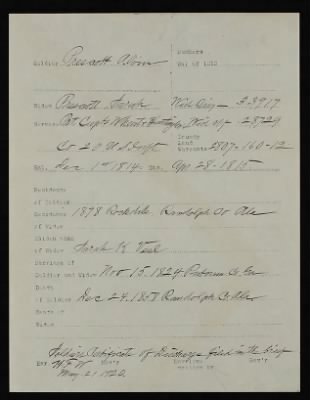 Numbers
Soldier Prescott Alvin War of 1812
Widow Prescott Sarah Wid. Orig - 33917
Service Pvt Capts Wid. ctf - 28729
Bounty
Land
Co 20 U.S. Inf Warrants 2807-160-12
Enl. Dec 1st 1814 - Apr 28 - 1815
Residence
of Soldier
Residence 1878 Rockdale Randolph Co Ala
of Widow
Maiden name
of Widow Sarah K
Marriage of
Soldier and Widow Nov 15. 1824 Co. Ga
Death
of Soldier Dec 24. 1858 Randolph Co. Ala
Death of
Widow
Soldiers Certificate of Discharge filed in the brief
May 21 1920